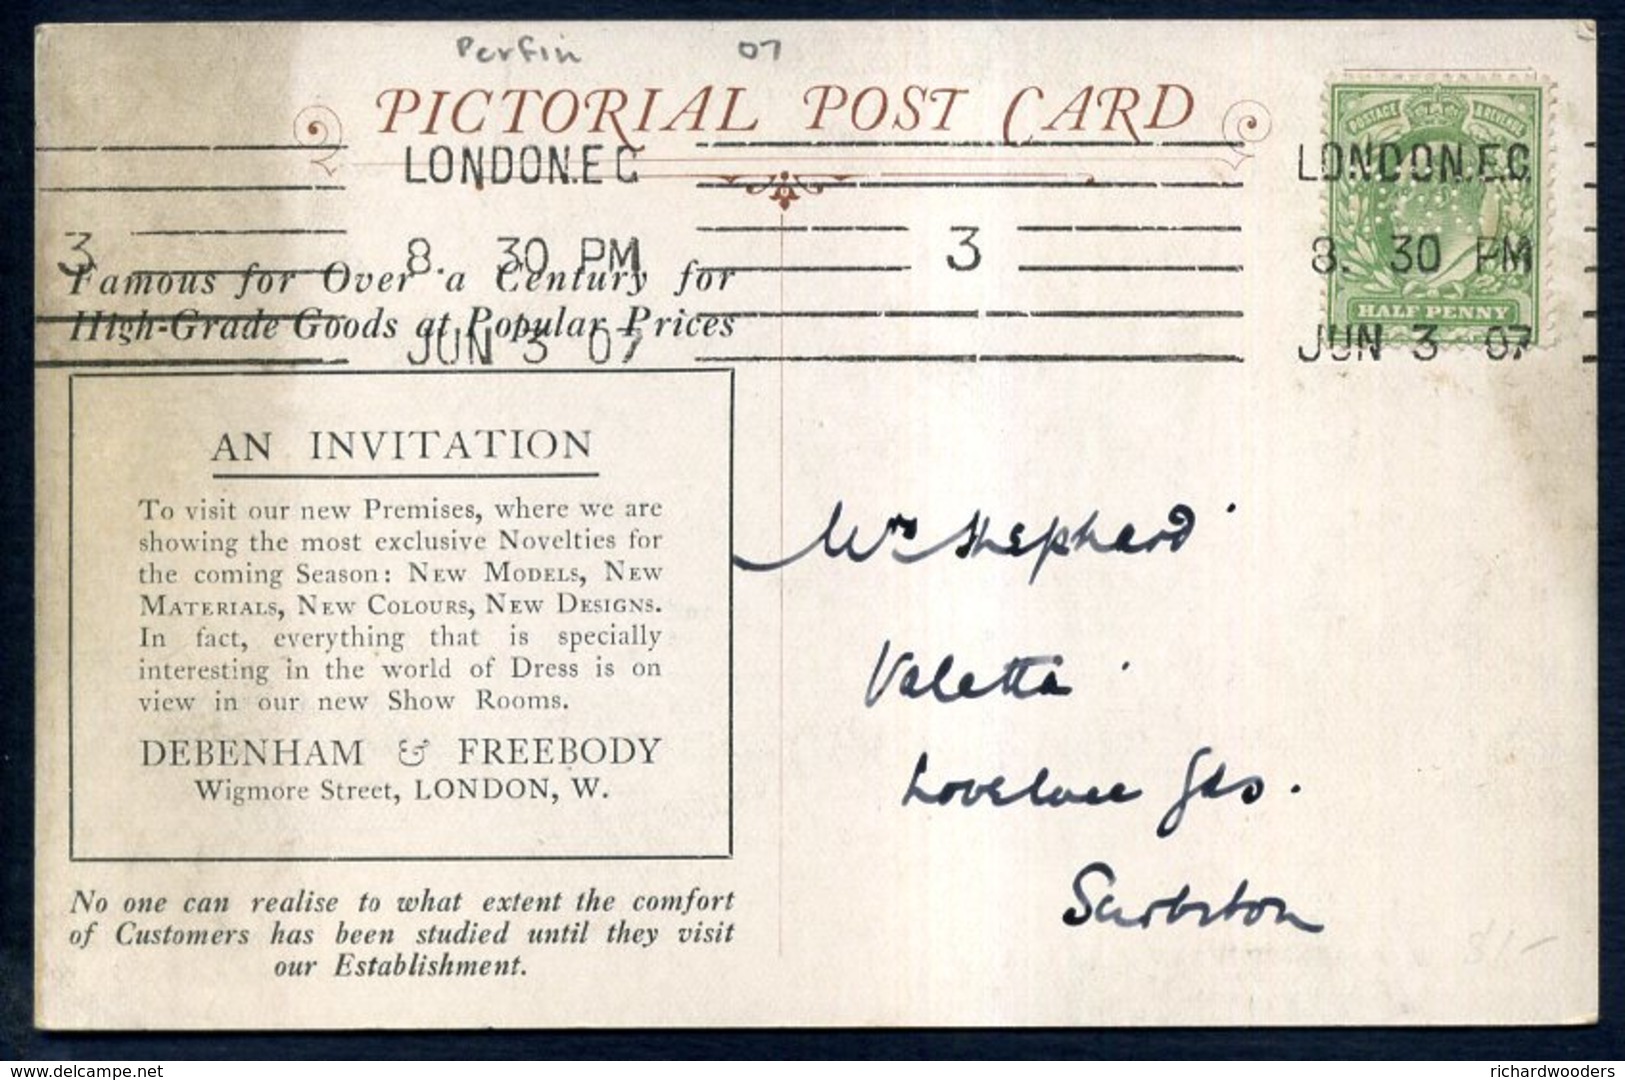 Perfin 07
PICTORIAL POST CARD
POSTAGE & REVENUE
LONDON.E.C LONDON.E.C
3 8. 30 PM 3 8. 30 PM
HALF PENNY
JUN 3 07 JUN 3 07
Famous for Over a Century for
High-Grade Goods at Popular Prices
AN INVITATION
To visit our new Premises, where we are
showing the most exclusive Novelties for
the coming Season: NEW MODELS, NEW
MATERIALS, NEW COLOURS, NEW DESIGNS.
In fact, everything that is specially
interesting in the world of Dress is on
view in our new Show Rooms.
DEBENHAM & FREEBODY
Wigmore Street, LONDON, W.
No one can realise to what extent the comfort
of Customers has been studied until they visit
our Establishment.
Mrs Shephard
Valetta
Lovelace Gds.
Surbiton
delcampe.net
richardwooders